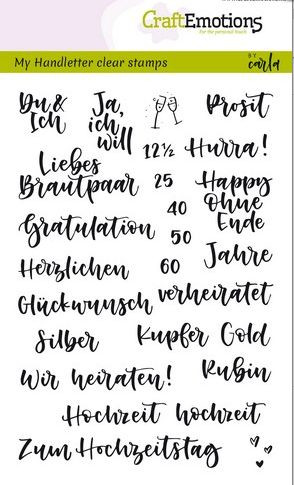 CraftEmotions
For the personal touch
My Handletter clear stamps
BY carla
Du &
Ich
Ja,
ich
will
Prosit
12½
Hurra!
Liebes
Brautpaar
25
Happy
Ohne
Ende
40
Gratulation
50
Jahre
Herzlichen
60
Glückwunsch
verheiratet
Silber
Kupfer
Gold
Wir heiraten!
Rubin
Hochzeit
hochzeit
Zum Hochzeitstag